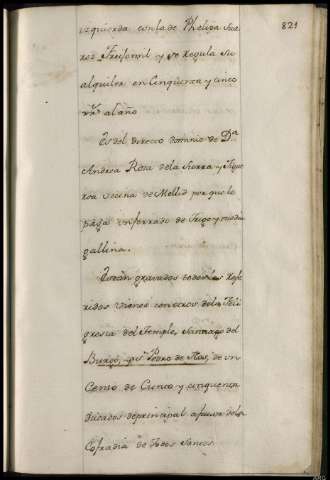 821
izquierda con la de Phelipa Sua
rez Freijomil y se regula su
alquiler en Cinquenta y cinco
rr.s al año
Es del directo dominio de D.a
Andrea Rosa de la Sierra y Figue
roa vecina de Mellid por que le
paga un ferrado de Trigo y media
gallina.
Están gravados todos los refe
ridos vienes con otros de la Feli
gresia del Temple, Santiago del
Burgo, y S.n Pedro de Nos, de un
Censo de Ciento y cinquenta
ducados de principal a favor de la
Cofradia de Todos Santos